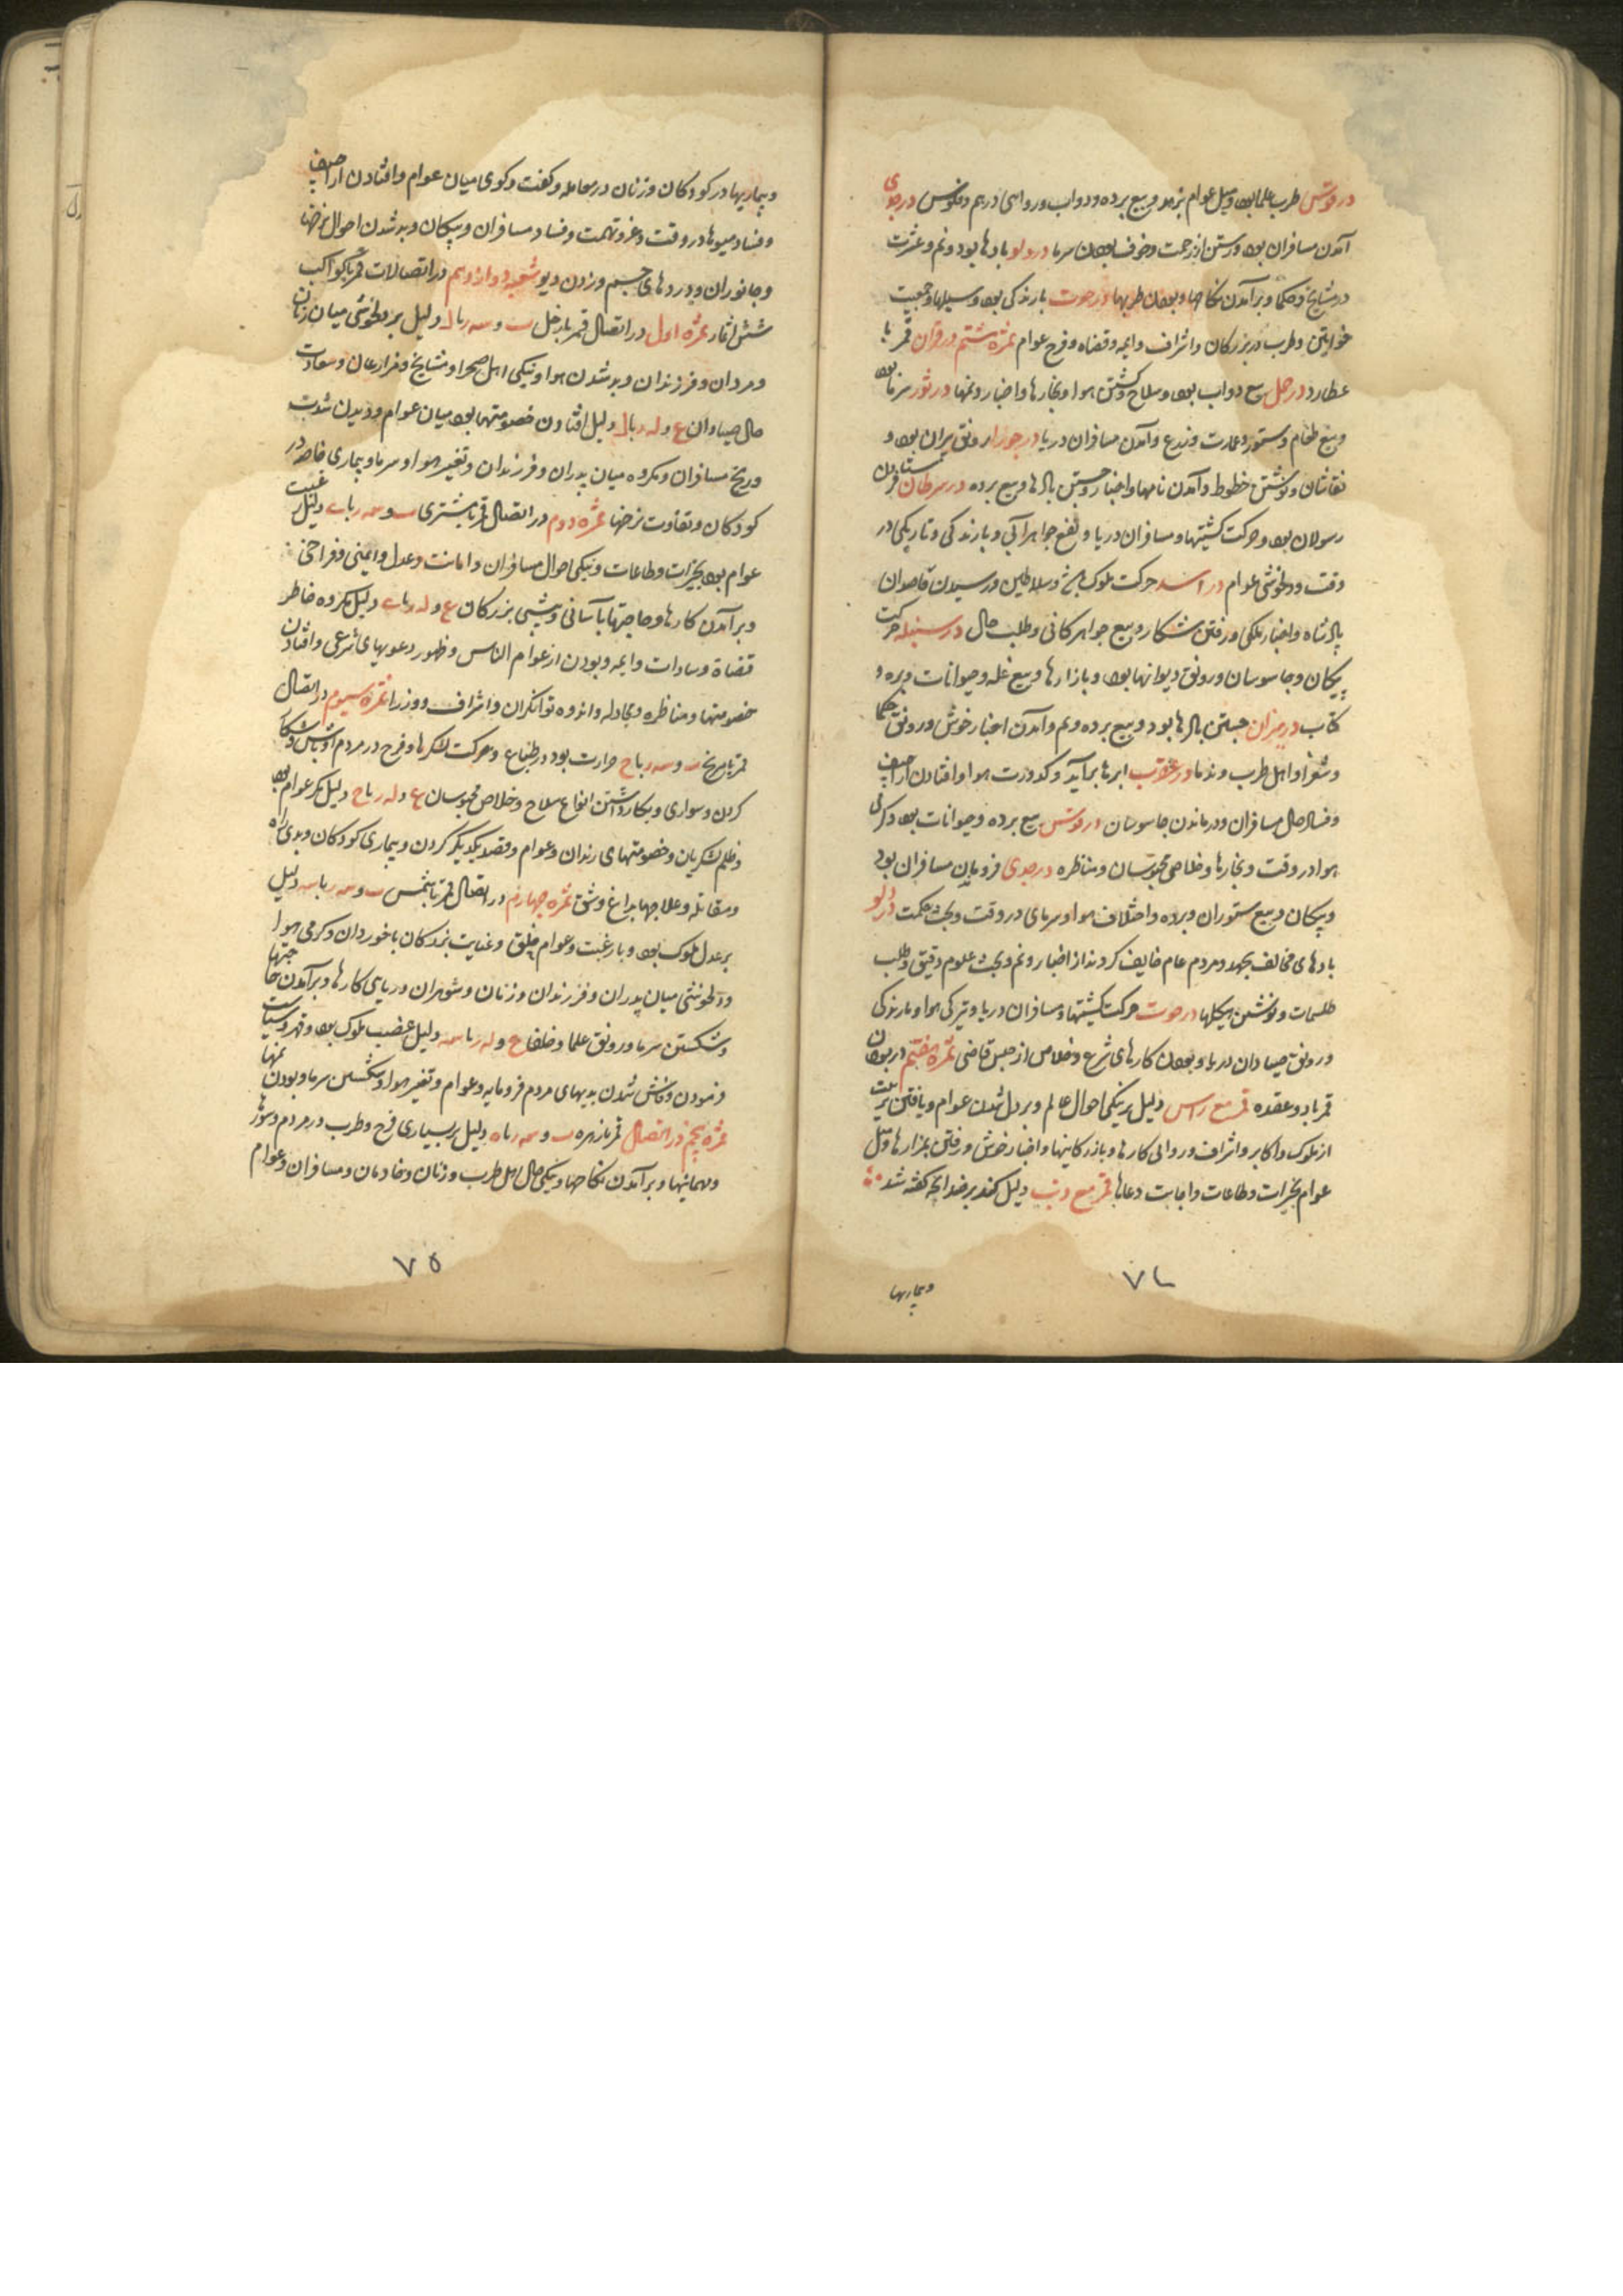 در قوس طرب علما بود و میل عوام بزهد و بیع برده و دواب و روایی درهم و فلوس در جدی
آمدن مسافران بود و رستن از زحمت و خوف بودن سرما در دلو بادها بود و نم و عشرت
در مشایخ و حکما و برآمدن نکاحها و بودن طربها در حوت بارندگی بود و سیلها و جمعیت
خواتین و طرب در بزرکان و اشراف و ایمه و قضاه و فرح عوام ثمره ششم در قران قمر با
عطارد در حمل بیع دواب بود و سلاح و کشتن هوا و بخارها و اخبار و نمها در ثور سرما بود
و بیع طعام و ستور و عمارت و زرع و آمدن مسافران دریا در جوزا رونق دبیران بود و
نقاشان و نوشتن خطوط و آمدن نامها و اخبار و جستن بادها و بیع برده در سرطان فرستادن
رسولان بود و حرکت کشتیها و مسافران دریا و نفع جواهر آبی و بارندکی و تاریکی در
وقت و دلخوشی عوام در اسد حرکت ملوک و سلاطین و رسیدن قاصدان
پادشاه و اخبار ملکی و رفتن شکار و بیع جواهر کانی و طلب مال در سنبله حرکت
پیکان و جاسوسان و رونق دیوانها بود و بازارها و بیع غله و حیوانات و بره و
کتاب در میزان جستن بادها بود و بیع برده و نم و آمدن اخبار خوش و رونق حکما
و شعرا و اهل طرب و ندما در عقرب ابرها برآید و کدورت هوا و افتادن اراجیف
و فساد حال مسافران و درماندن جاسوسان در قوس بیع برده و حیوانات بود و کرمی
هوا در وقت و بخارها و خلاصی محبوسان و مناظره در جدی فرومان مسافران بود
و پیکان و بیع ستوران و برده و اختلاف هوا و سرمای در وقت و بحث حکمت در دلو
بادهای مخالف بجهد و مردم عام خایف کردند از اخبار و نم و بحث علوم دقیق و طلب
طلسمات و نوشتن هیکلها در حوت حرکت کشتیها و مسافران دریا و تیرکی هوا و بارندکی
و رونق صیادان دریا و بودن کارهای شرع و خلاص از حبس قاضی ثمره هفتم در بودن
قمر با دو عقده قمر مع راس دلیل بر نیکی احوال عالم و بر دل شدن عوام و یافتن تربیت
از ملوک و اکابر و اشراف و روایی کارها و بازرکانیها و اخبار خوش و رفتن بمزارها و میل
عوام بخیرات و طاعات و اجابت دعاها قمر مع ذنب دلیل کند بر ضد انچه کفته شد
۷۴
و بیماریها
و بیماریها در کودکان و زنان در معامله و کفت و کوی میان عوام و افتادن اراجیف
و فساد میوها در وقت و غز و تهمت و فساد مسافران و پیکان و بد شدن احوال نرخها
و جانوران و دردهای جسم و زدن دیو شعبه دوازدهم در اتصالات قمر با کواکب
شش اثمار ثمره اول در اتصال قمر با زحل س و سه ربال دلیل بر دلخوشی میان زنان
و مردان و فرزندان و بد شدن هوا و نیکی اهل صحرا و مشایخ و مزارعان و سعادت
حال صیادان ع و له ربال دلیل افتادن خصومتها بود میان عوام و دیدن شدت
و رنج مسافران و مکروه میان پدران و فرزندان و تغییر هوا و سرما و بیماری خاصه در
کودکان و تفاوت نرخها ثمره دوم در اتصال قمر با مشتری س و سه ربای دلیل رغبت
عوام بود بخیرات و طاعات و نیکی احوال مسافران و امانت و عدل و ایمنی و فراخی
و برآمدن کارها و حاجتها باسانی و شبی بزرکان ع و له ربای دلیل مکروه خاطر
قضاة و سادات و ایمه و بودن از عوام الناس و ظهور دعویهای شرعی و افتادن
خصومتها و مناظره و مجادله و اندوه توانکران و اشراف و وزرا ثمره سیوم در اتصال
قمر با مریخ س و سه رباح حرارت بود در طباع و حرکت لشکرها و فرح در مردم اوباش و شکار
کردن و سواری و بکار داشتن انواع سلاح و خلاص محبوسان ع و له رباح دلیل مکر عوام بود
و ظلم لشکریان و خصومتهای رندان و عوام و قصد یکدیکر کردن و بیماری کودکان و بدی راه
و مقاتله و علاجها بداغ و شق ثمره چهارم در اتصال قمر با شمس س و سه رباسه دلیل
بر عدل ملوک بود و با رغبت و عوام مخلق و عنایت بزرکان با خوردان و کرمی هوا
و دلخوشی میان پدران و فرزندان و زنان و شوهران و رباهی کارها و برآمدن حاجتها
و شکستن سرما و رونق علما و خلفا ع و له رباسه دلیل غضب ملوک بود و قهر و سیاست
و نمودن و فاش شدن بدیهای مردم فرومایه و عوام و تغیر هوا و شکستن سرما و بودن نمها
ثمره پنجم در اتصال قمر با زهره س و سه رباه دلیل بر بسیاری فرح و طرب در مردم و سورها
و مهمانیها و برآمدن نکاحها و نیکی حال اهل طرب و زنان و خادمان و مسافران و عوام
۷۵